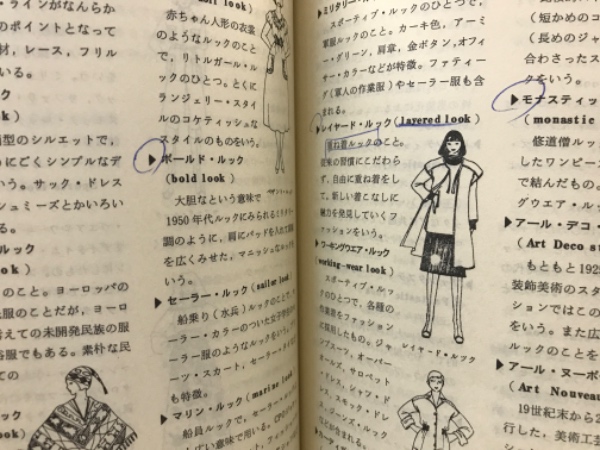 ・ラインがなんらか
のポイントとなって
材，レース，フリル
いる。
ク
ook）
型のシルエットで，
うにごくシンプルなデ
いう。サック・ドレス
シュミーズとかいろい
ルック
look）
のこと。ヨーロッパの
服のことだが，ヨーロ
考えての未開発民族の服
俗服でもある。素朴な民
ての
ク
ook）
赤ちゃん人形の衣裳
のようなルックのこと
で，リトルガール・ル
ックのひとつ。とくに
ランジェリー・スタイ
ルのコケティッシュな
スタイルのものをいう。
▶ボールド・ルック
（bold look）
大胆なという意味で
1950年代ルックにみられる
調のように，肩にパッドを入れて
を広くみせた，マニッシュな
いう。
▶セーラー・ルック（sailor look
船乗り（水兵）ルックのことで，
ーラー・カラーのついた
ーラー服のようなルックをいう。
ーツ・スカート，セーラー
も特徴。
▶マリン・ルック（marine look
船員ルックで，セーラー・ルック
広い意味で用いる。
▶ミリタリー・ルック
スポーティブ・ルックのひとつで，
軍服ルックのこと。カーキ色，アーミ
ー・グリーン，肩章，金ボタン，オフィ
サー・カラーなどが特徴。ファティー
グ（軍人の作業服）やセーラー服も含
まれる。
▶レイヤード・ルック（layered look）
重ね着ルックのこと。
従来の習慣にこだわら
ず，自由に重ね着をし
て，新しい着こなしに
魅力を発見していくフ
ァッションをいう。
▶ワーキングウエア・ルック
（working-wear look）
スポーティブ・ルッ
クのひとつで，各種の
作業着をファッション
に採用したもの。ジャ
ンプスーツ，オーバー
オールズ，サロペット
・ドレス，シャツ・ド
レス，スモック・ドレ
ス，ジーンズ・ルック
などが含まれる。
レイヤード・ルック
（短かめのコ
（長めのジャ
合わさったス
クをいう。
▶モナスティッ
（monastic
修道僧ルック
したワンピース
で結んだもの。
グウエア・ルッ
▶アール・デコ・
（Art Deco st
もともと1925
装飾美術のスタ
ションではこの
をいう。また広
ルックのことを
▶アール・ヌーボー
（Art Nouveau
19世紀末から2
行した，美術工芸